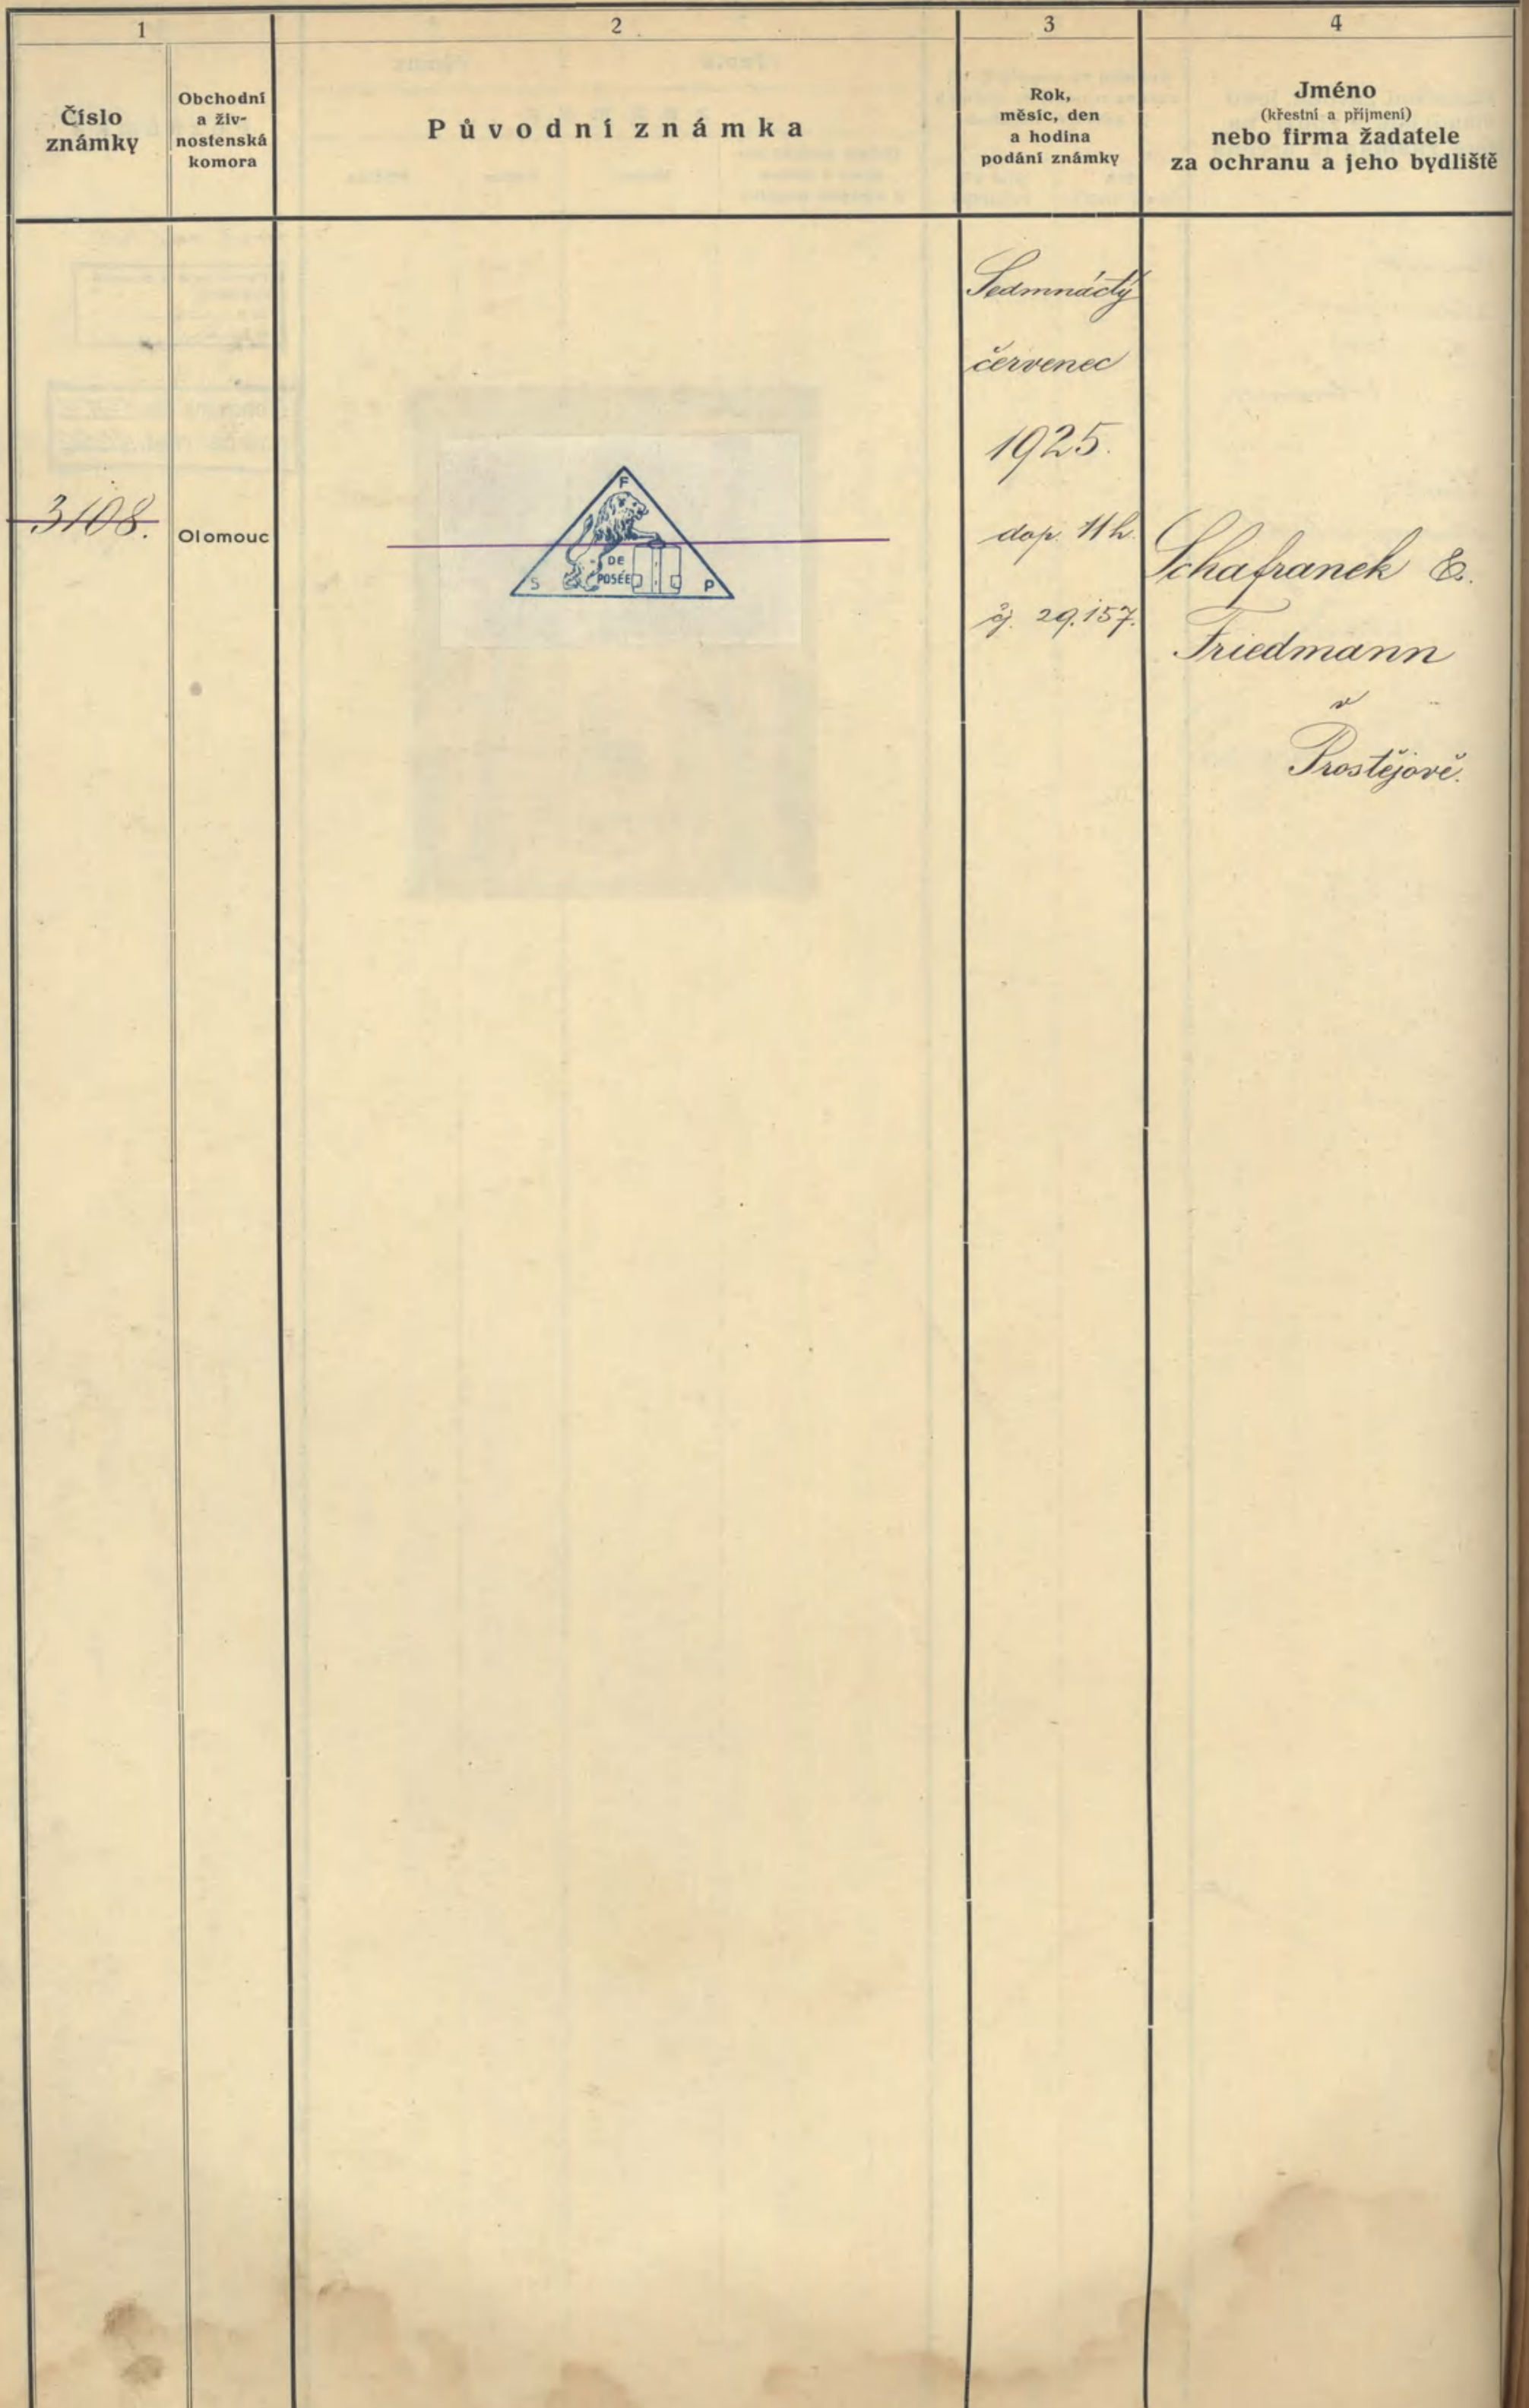 1
2
3
4
Číslo
známky
Obchodní
a živ-
nostenská
komora
Původní známka
Rok,
měsíc, den
a hodina
podání známky
Jméno
(křestní a příjmení)
nebo firma žadatele
za ochranu a jeho bydliště
3108.
Olomouc
F
DE
POSÉE
S
P
Sedmnáctý
červenec
1925.
dop. 11 h.
čj. 29.157.
Schafranek &
Friedmann
v
Prostějově.